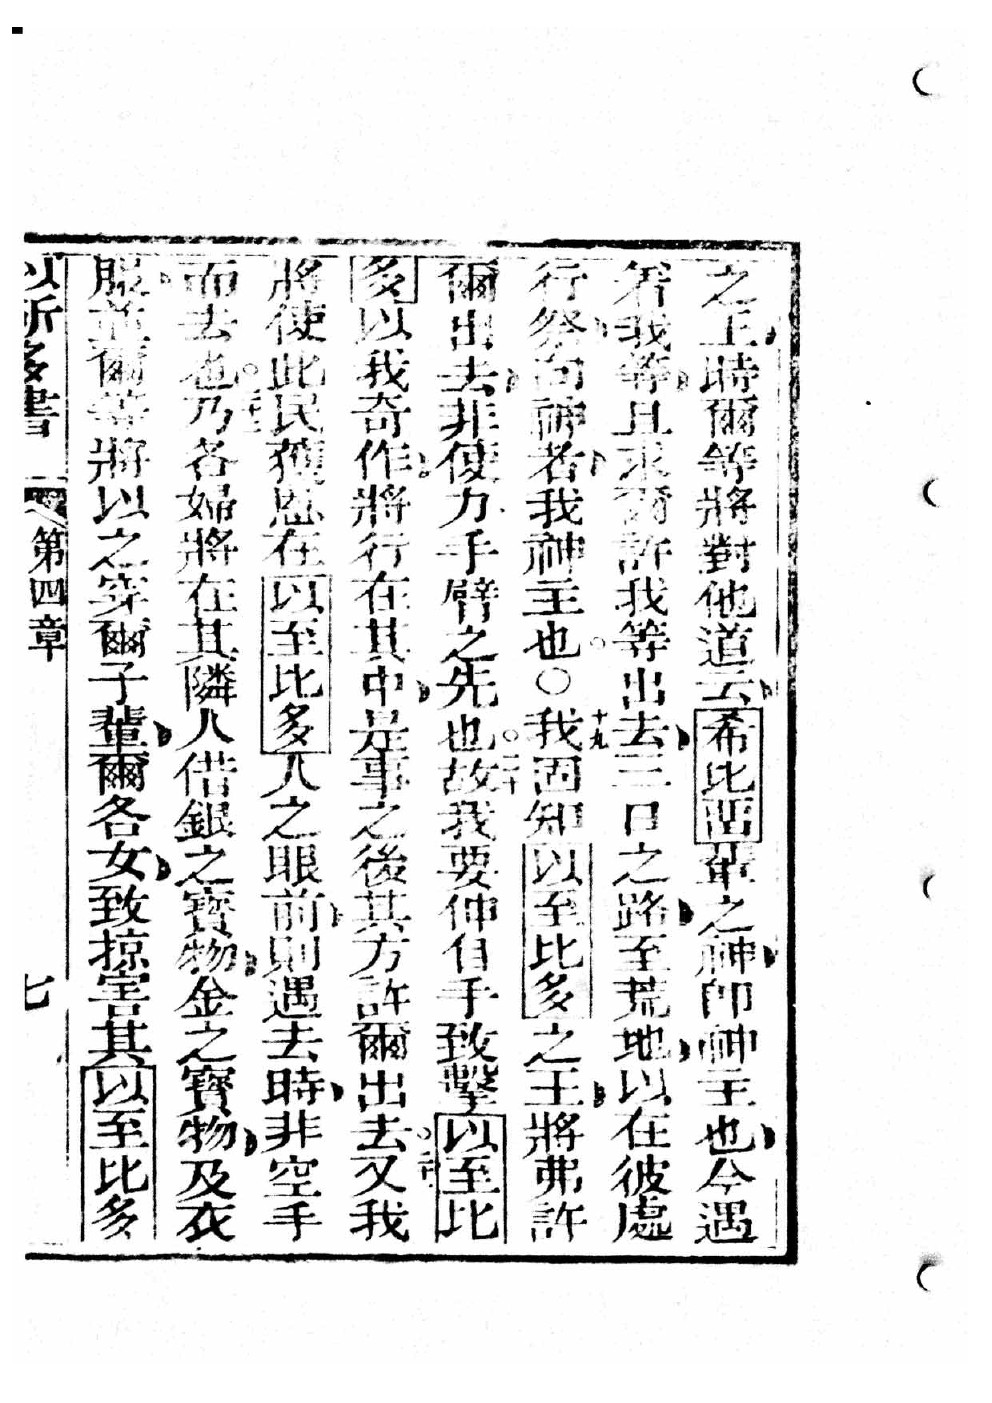 之王時爾等將對他道云希比畱輩之神卽神主也今遇
着我等且求爾許我等出去三日之路至荒地以在彼處
行祭向神者我神主也○十九我固知以至比多之王將弗許
爾出去非使力手臂之先也二十故我要伸自手致擊以至比
多以我奇作將行在其中是事之後其方許爾出去二一又我
將使此民獲恩在以至比多人之眼前則遇去時非空手
而去也乃各婦將在其隣人借銀之寶物金之寶物及衣
服並爾等將以之穿爾子輩爾各女致掠害其以至比多
以所多書 第四章 七